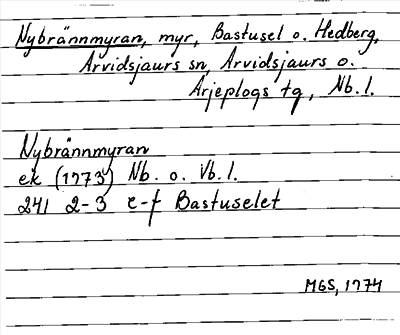 Nybrännmyran, myr, Bastusel o. Hedberg,
Arvidsjaurs sn, Arvidsjaurs o.
Arjeplogs tg, Nb. l.
Nybrännmyran
ek (1973) Nb. o. Vb. l.
241 2-3 e-f Bastuselet
MGS, 1974